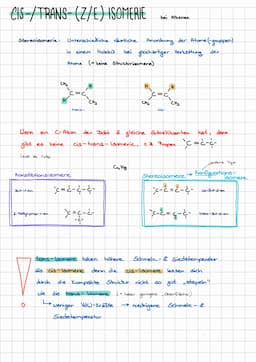 CIS-/TRANS- (Z/E) ISOMERIE bei Alkenen
Stereoisomerie: Unterschiedliche räumliche Anordnung der Atome (-gruppen)
in einem Molekül bei gleichartiger Verkettung der
Atome (≠ keine Strukturisomere)
CH₃ H
C=C
H CH₃
H H
C=C
CH₃ CH₃
Wenn ein C-Atom der DoBi 2 gleiche Substituenten hat, dann
gibt es keine cis-trans-Isomerie, z.B. Propen C=C-C-
C₄H₈
Konstitutionsisomere
Stereoisomere → Konfigurations-
isomere
C=C-C-C-
C=C-C-
-C-C=C-C-
-C-C=C-C-
trans-Isomere haben höhere Schmelz- & Siedetemperatur
als cis-Isomere denn die cis-Isomere lassen sich
durch die kompakte Struktur nicht so gut „stapeln"
wie die trans-Isomere
↳ weniger VdW-Kräfte → niedrigere Schmelz- &
Siedetemperatur